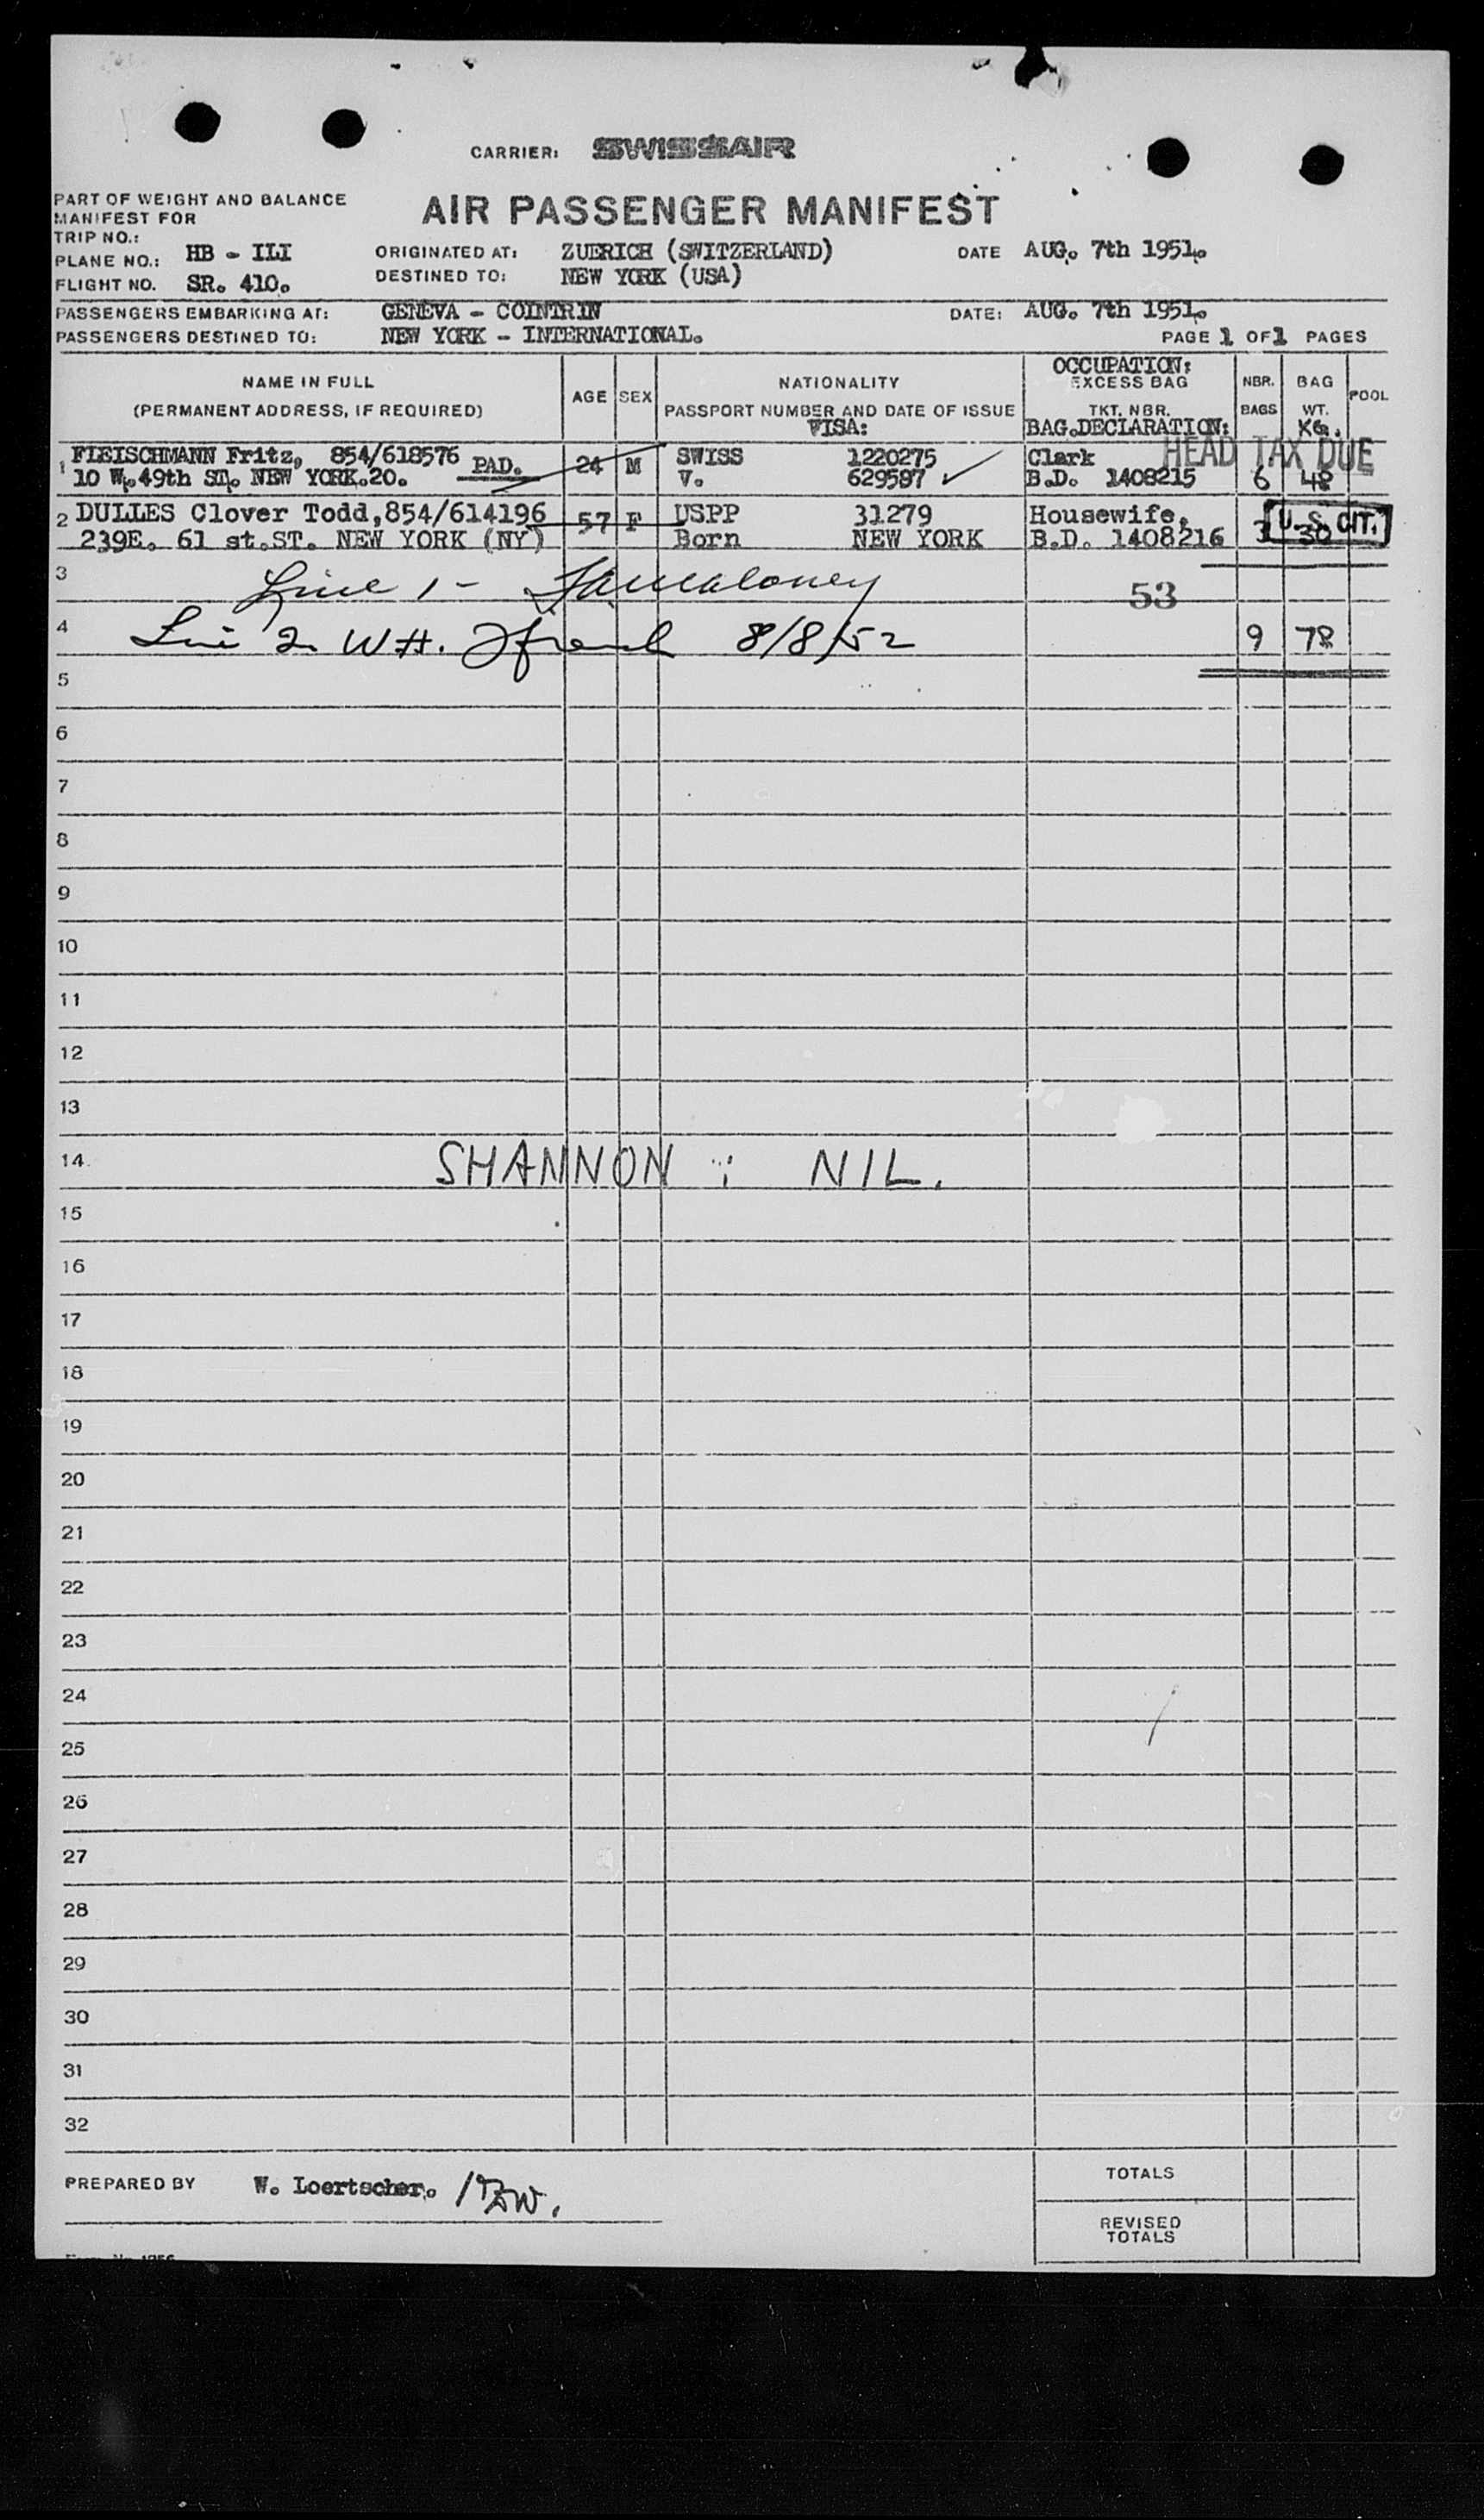 CARRIER: SWISSAIR
PART OF WEIGHT AND BALANCE
MANIFEST FOR
AIR PASSENGER MANIFEST
TRIP NO.:
PLANE NO.: HB - ILI ORIGINATED AT: ZUERICH (SWITZERLAND) DATE AUG. 7th 1951.
FLIGHT NO. SR. 410. DESTINED TO: NEW YORK (USA)
PASSENGERS EMBARKING AT: GENEVA - COINTRIN DATE: AUG. 7th 1951.
PASSENGERS DESTINED TO: NEW YORK - INTERNATIONAL. PAGE 1 OF 1 PAGES
NAME IN FULL
(PERMANENT ADDRESS, IF REQUIRED)
AGE
SEX
NATIONALITY
PASSPORT NUMBER AND DATE OF ISSUE
VISA:
OCCUPATION:
EXCESS BAG
TKT. NBR.
BAG.DECLARATION:
NBR.
BAGS
BAG
WT.
KG.
POOL
HEAD TAX DUE
1 FLEISCHMANN Fritz, 854/618576 PAD. 24 M SWISS 1220275 Clark
10 W. 49th ST. NEW YORK.20. V. 629587 B.D. 1408215 6 48
2 DULLES Clover Todd,854/614196 57 F USPP 31279 Housewife, U.S. CIT.
239E. 61 st.ST. NEW YORK (NY) Born NEW YORK B.D. 1408216 3 30
3 Line 1 - 53
4 Line 2 W.H. 8/8/52 9 78
5
6
7
8
9
10
11
12
13
14 SHANNON : NIL.
15
16
17
18
19
20
21
22
23
24
25
26
27
28
29
30
31
32
PREPARED BY W. Loertscher.
TOTALS
REVISED
TOTALS